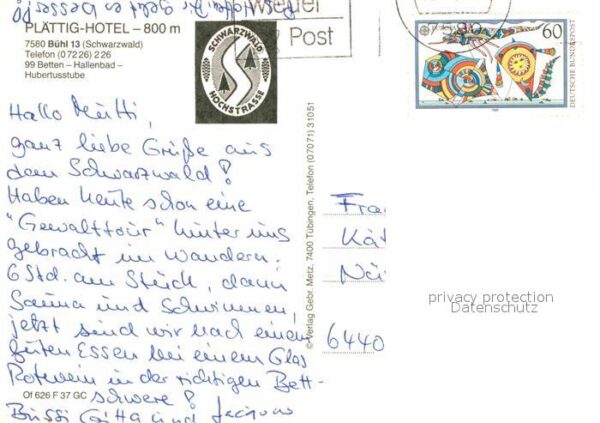 PLÄTTIG-HOTEL – 800 m
7580 Bühl 13 (Schwarzwald)
Telefon (0 72 26) 2 26
99 Betten – Hallenbad –
Hubertusstube
Hallo Mutti,
ganz liebe Grüße aus
dem Schwarzwald!
Haben heute schon eine
"Gewalttour" hinter uns
gebracht im Wandern.
6 Std. am Stück, dann
Sauna und Schwimmen,
jetzt sind wir nach einem
guten Essen bei einem Glas
Rotwein in der richtigen Bett-
schwere!
Bussi Gitta und
Of 626 F 37 GC
SCHWARZWALD
HOCHSTRASSE
© Verlag Gebr. Metz, 7400 Tübingen, Telefon (07071) 31051
Post
60
DEUTSCHE BUNDESPOST
Fra
Kät
6440
privacy protection
Datenschutz